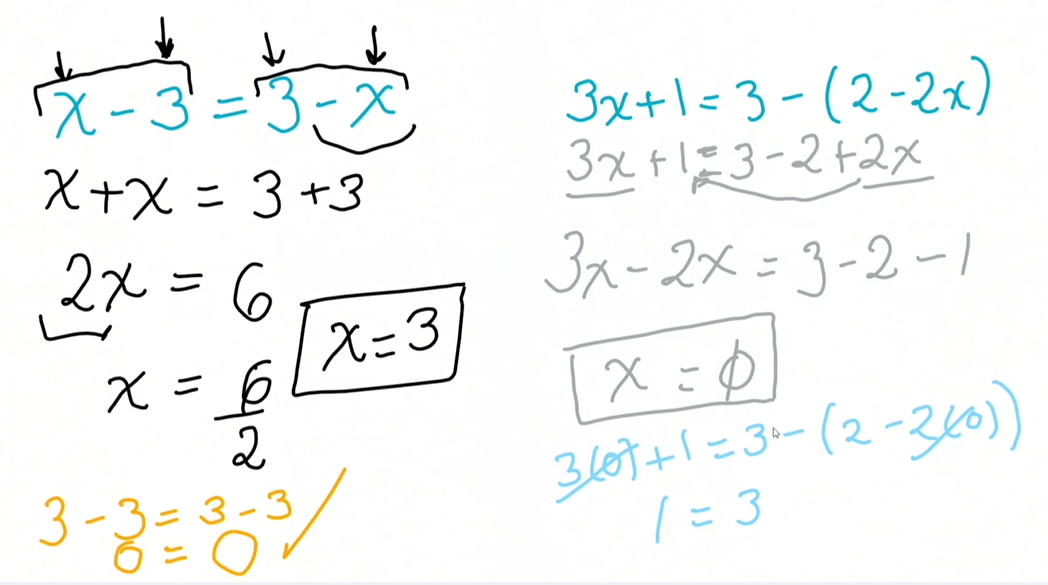 x - 3 = 3 - x
x + x = 3 + 3
2x = 6
x = 6/2
x = 3
3 - 3 = 3 - 3 ✓
0 = 0
3x + 1 = 3 - (2 - 2x)
3x + 1 = 3 - 2 + 2x
3x - 2x = 3 - 2 - 1
x = 0
3(0) + 1 = 3 - (2 - 2(0))
1 = 3